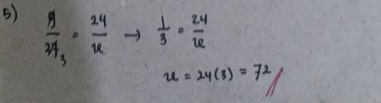 5) 9/27 3 = 24/x → 1/3 = 24/x
x = 24(3) = 72